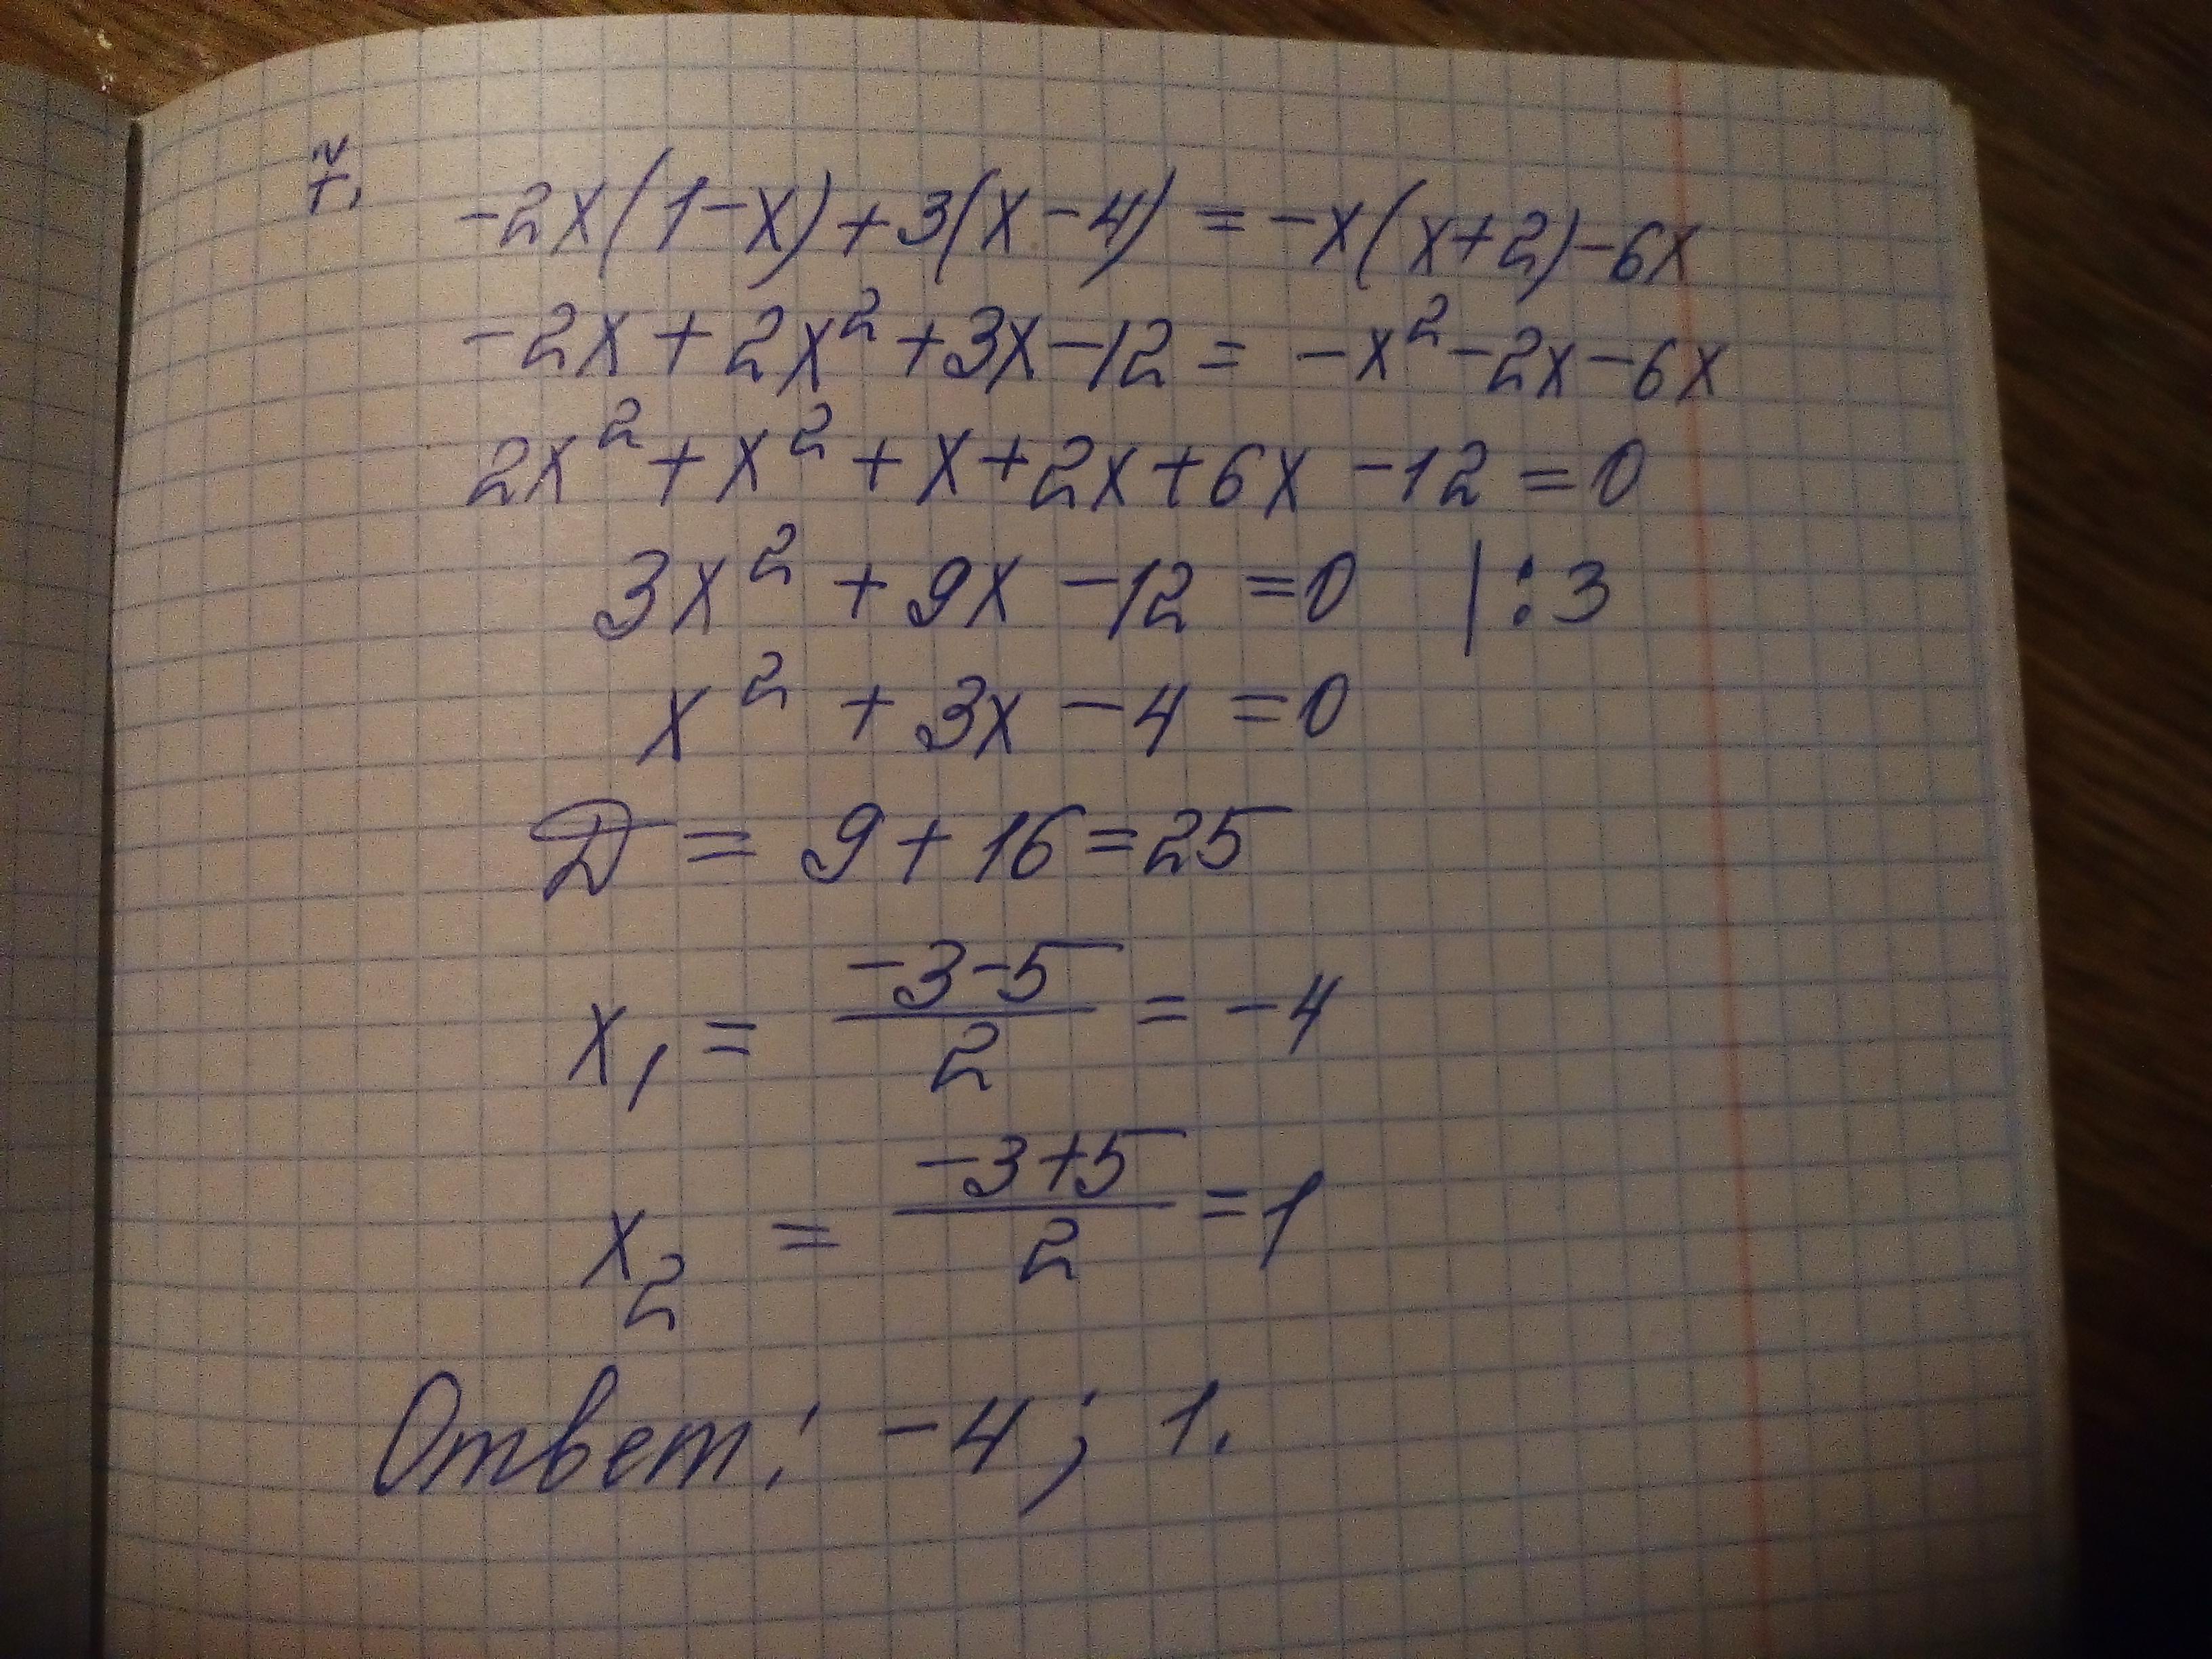 -2x(1-x)+3(x-4)=-x(x+2)-6x
-2x+2x²+3x-12=-x²-2x-6x
2x²+x²+x+2x+6x-12=0
3x²+9x-12=0 |:3
x²+3x-4=0
D=9+16=25
x₁=(-3-5)/2=-4
x₂=(-3+5)/2=1
Ответ: -4; 1.